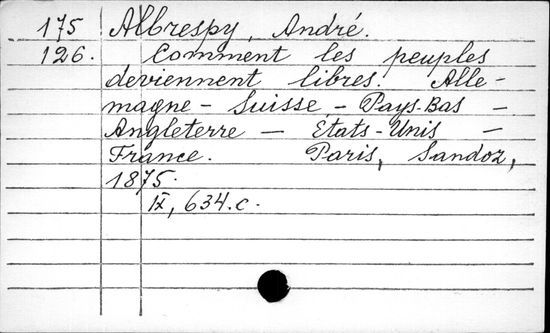 175 Albrespy, André.
126. Comment les peuples
deviennent libres. Alle-
magne – Suisse – Pays-Bas –
Angleterre – États-Unis –
France. Paris, Sandoz,
1875.
IX, 634.c.